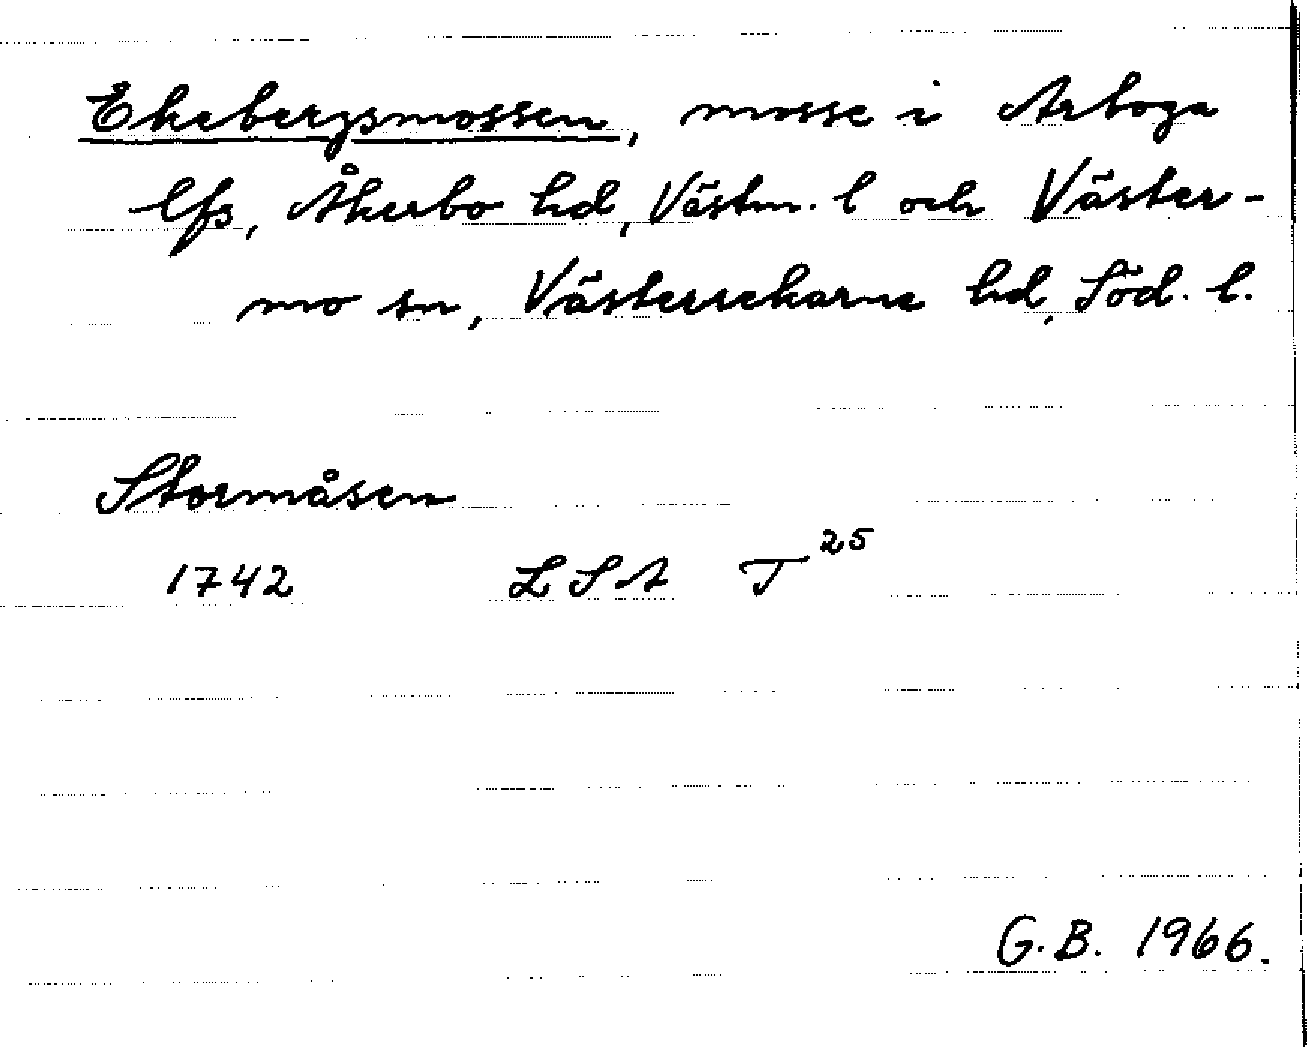 Ekebergsmossen, mosse i Arboga
lfs, Åkerbo hd, Västm. l och Väster-
mo sn, Västerrekarne hd, Söd. l.
Stormåsen
1742 LSA T 25
G.B. 1966.